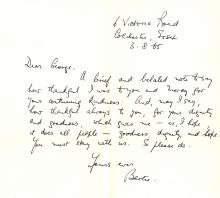 6 Victoria Road
3. 8. 65
Dear George,
A brief and belated note to say
how thankful I was to you and for
your continuing kindness. And, may I say,
how thankful always to you, for your dignity
and goodness, which gives me – as I hope
it does all people – goodness, dignity and hope.
You must stay with us. So please do.
Yours ever